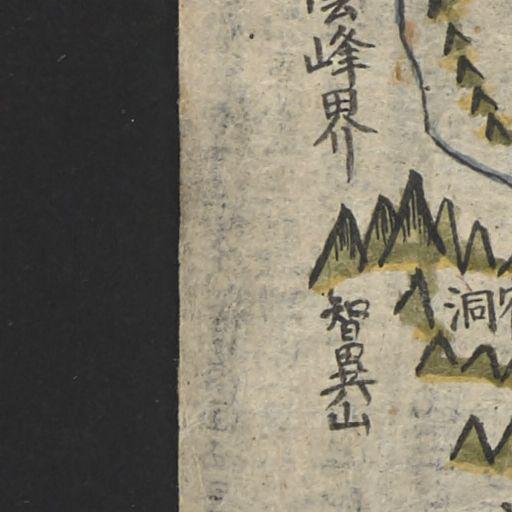 峰界
智異山
洞